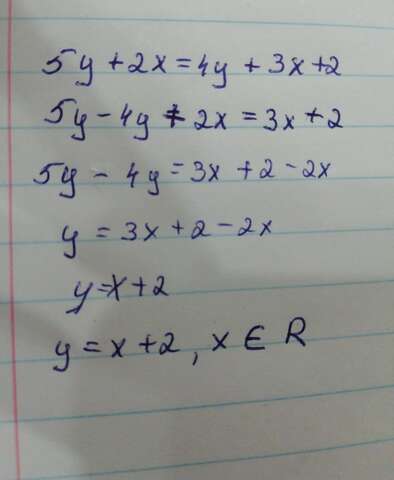 5y + 2x = 4y + 3x + 2
5y - 4y + 2x = 3x + 2
5y - 4y = 3x + 2 - 2x
y = 3x + 2 - 2x
y = x + 2
y = x + 2, x ∈ R